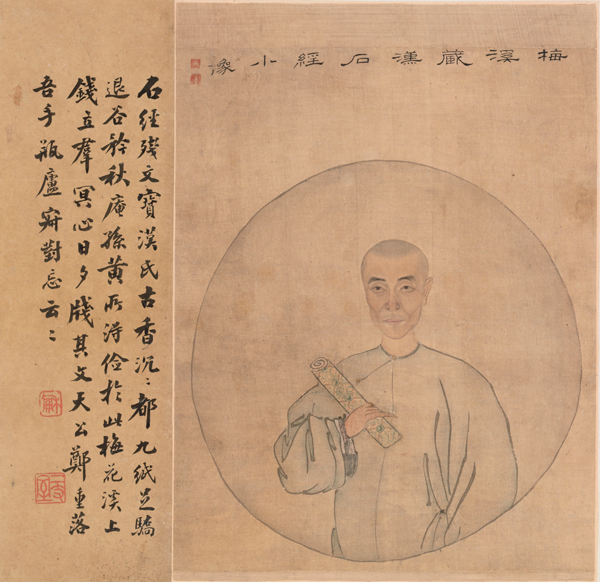 梅溪藏漢石經小像
石經殘文寶漢氏古香沉〻都九紙足驕
退谷矜秋庵孫黃所得儉於此梅花溪上
錢立羣冥心日夕牋其文天公鄭重落
吾手瓶廬對忘云〻